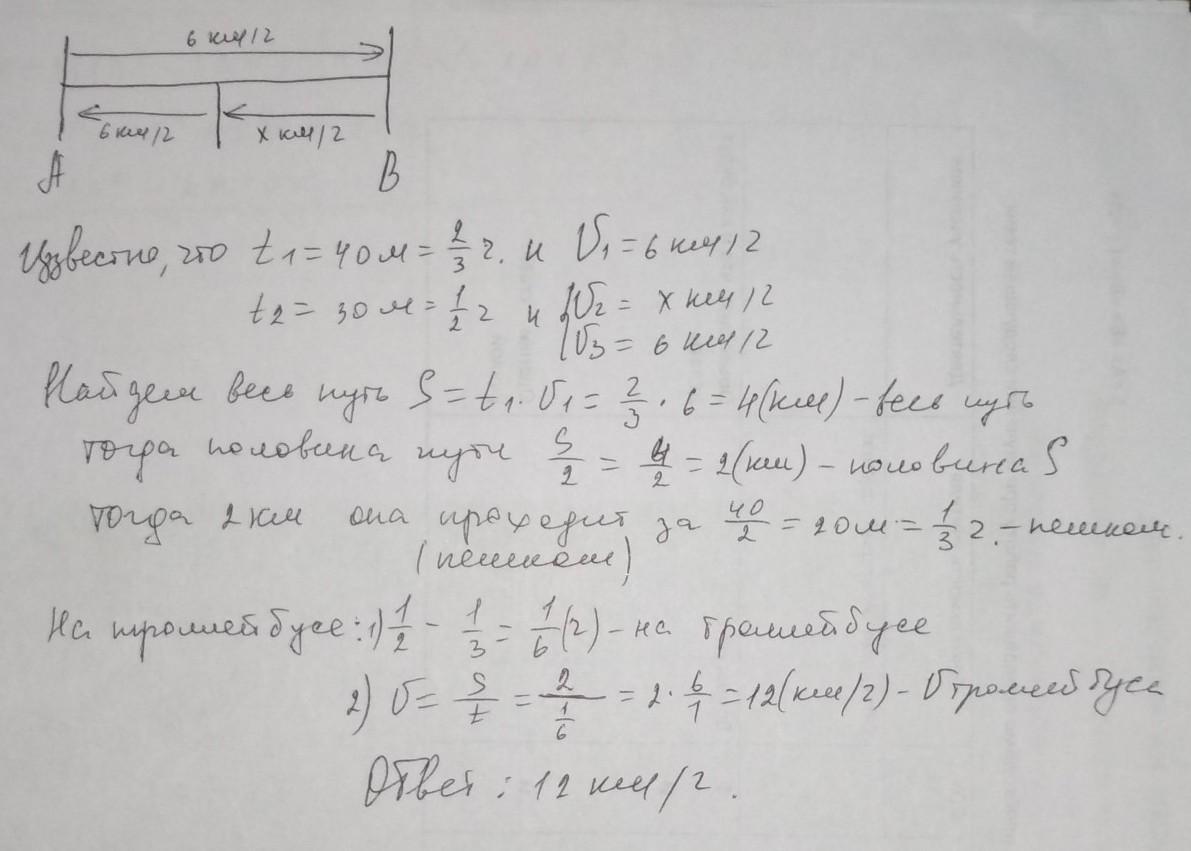 6 км/ч
6 км/ч x км/ч
A B
Известно, что t1 = 40 м = 2/3 ч. и V1 = 6 км/ч
t2 = 30 м = 1/2 ч и {V2 = x км/ч
V3 = 6 км/ч
Найдем весь путь S = t1 · V1 = 2/3 · 6 = 4(км) – весь путь
тогда половина пути S/2 = 4/2 = 2(км) – половина S
тогда 2 км она проходит за 40/2 = 20 м = 1/3 ч. – пешком.
(пешком)
На троллейбусе: 1) 1/2 - 1/3 = 1/6 (ч) – на троллейбусе
2) V = S/t = 2/(1/6) = 2 · 6/1 = 12(км/ч) – V троллейбуса
Ответ: 12 км/ч.